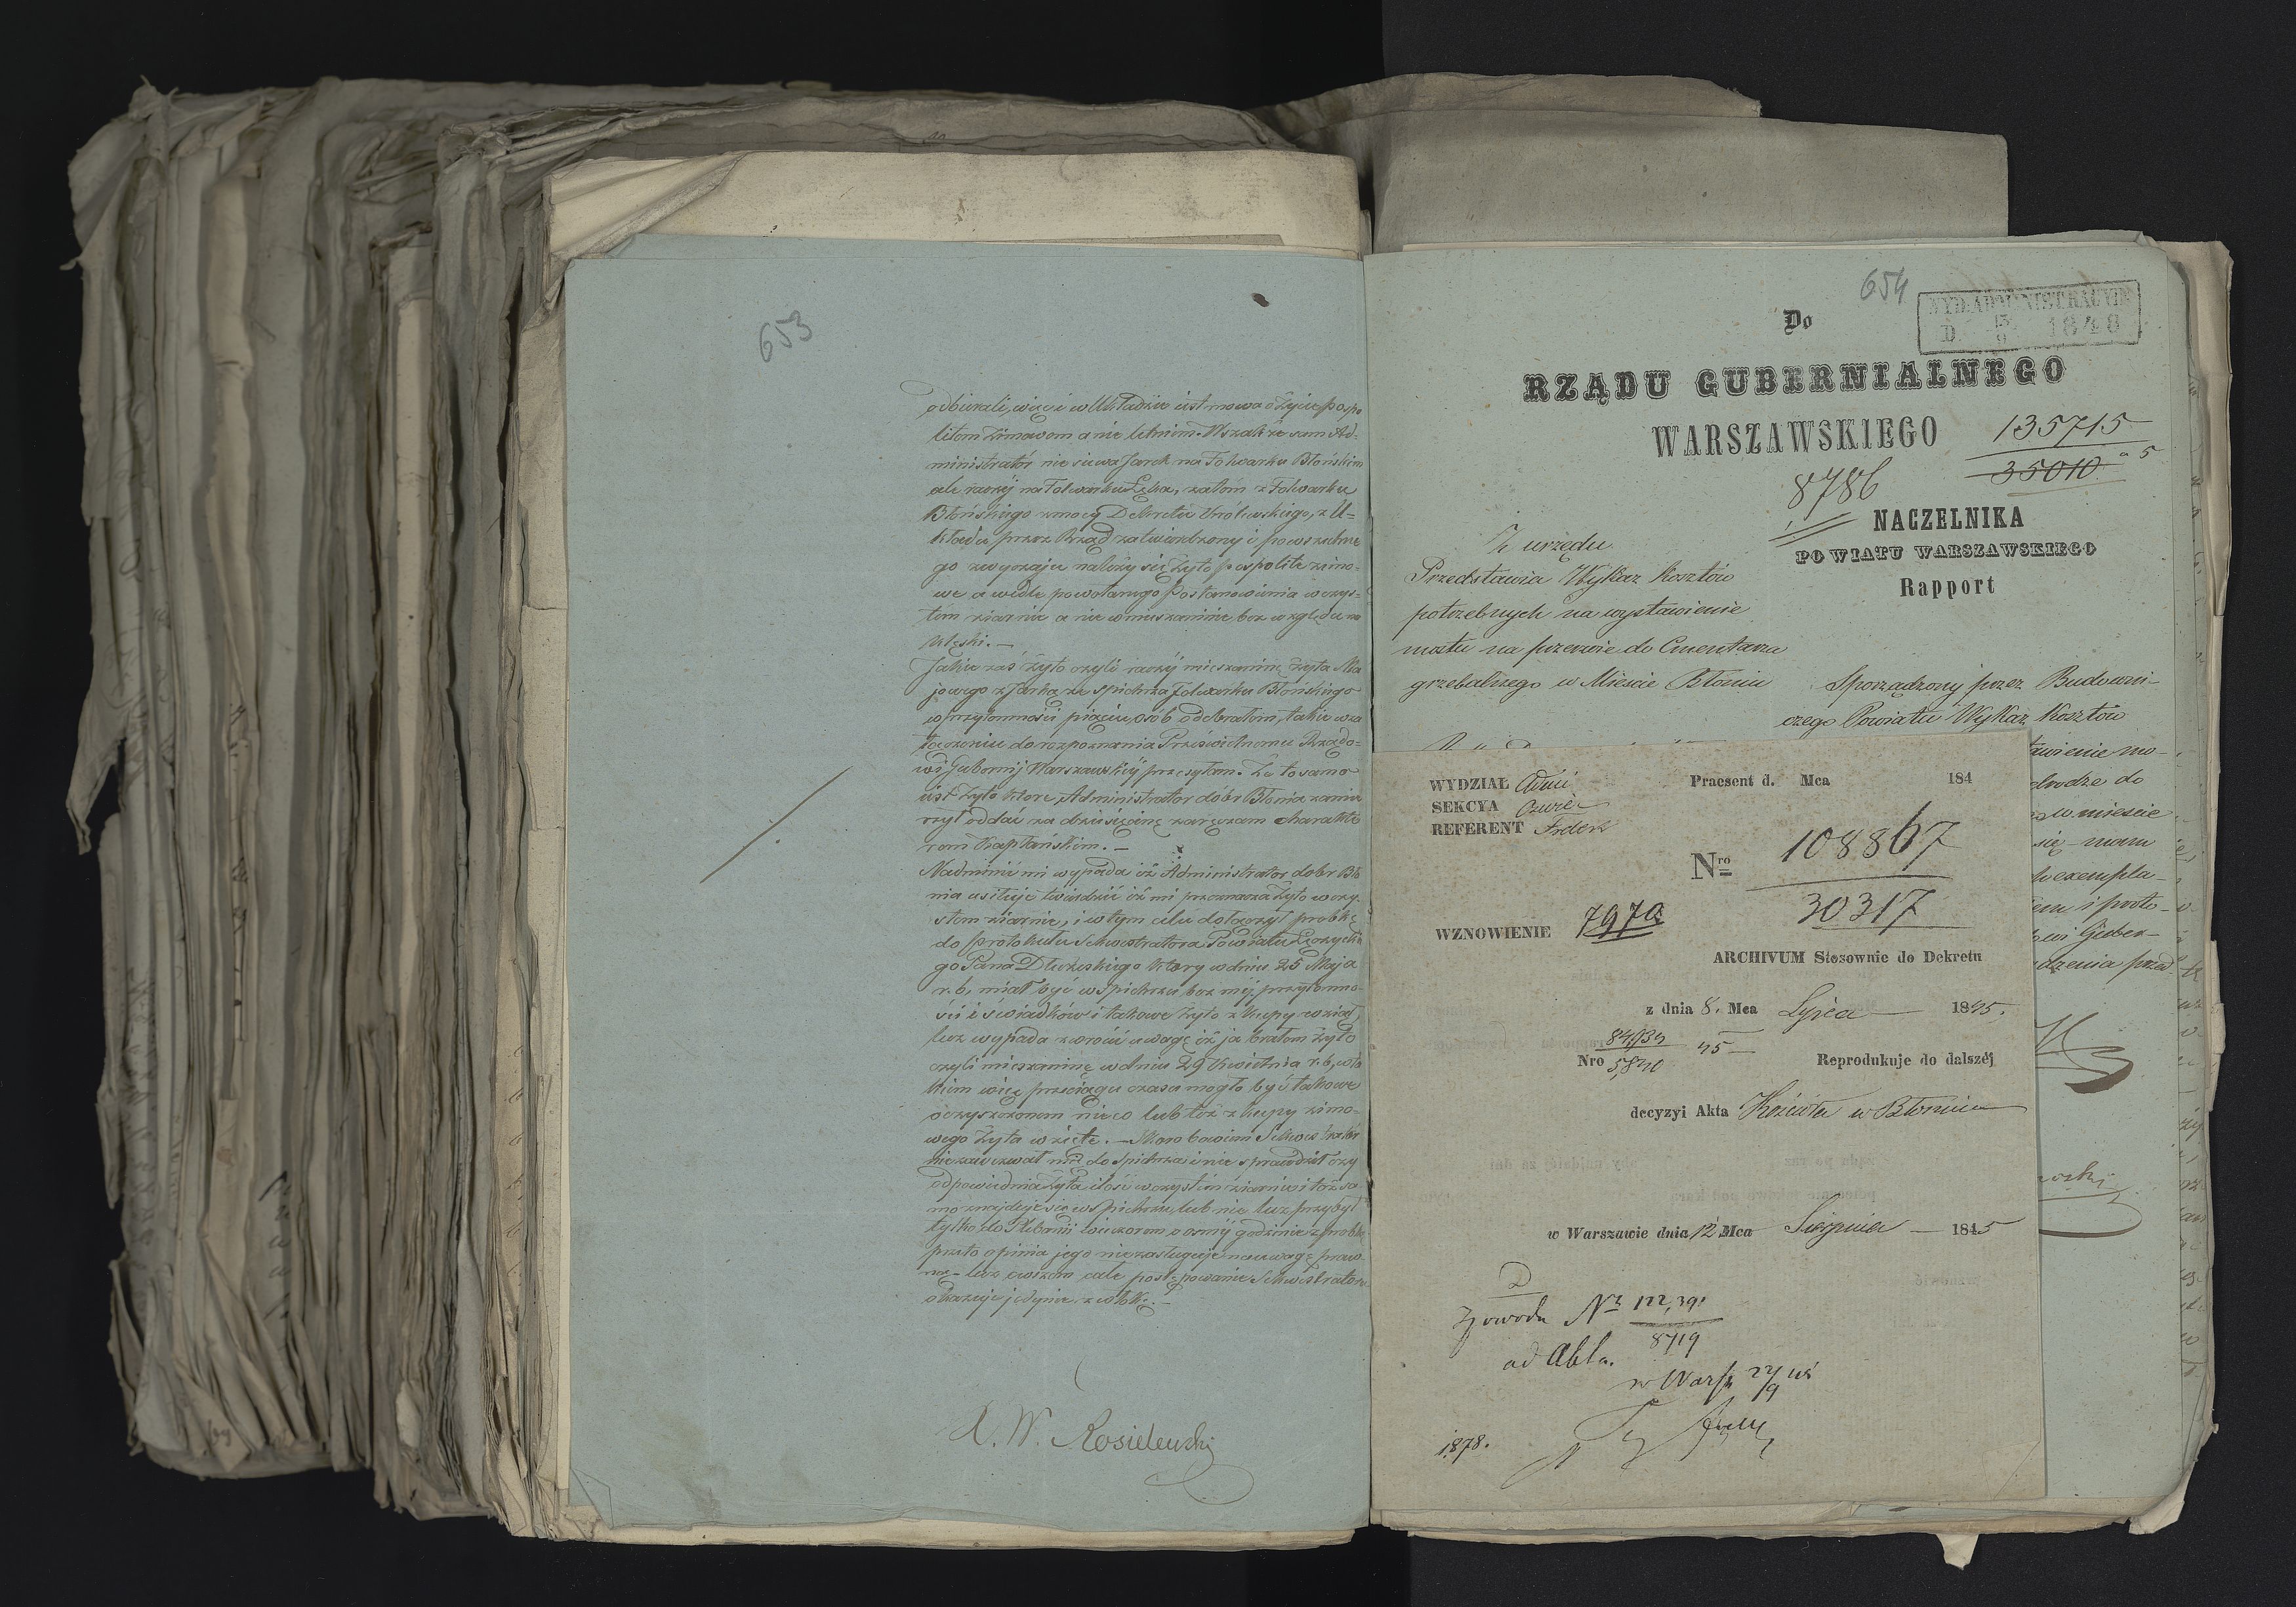 653
odbierali, więc i w Układzie jest mowa o życie pospo
litem zimowem a nie letniem. Wszakże sam Ad-
ministrator nie siewa Jarek na Folwarku Błońskim
ale raczej na Folwarku Łąka, zatem z Folwarku
Błońskiego z mocy Dekretu Królewskiego, z U=
kładu przez Rząd zatwierdzony i powszechne
go zwyczaju należy się żyto pospolite zimo-
we a wedle powołanego Postanowienia w czys=
tem ziarnie a nie w mieszaninie bez względu na
klęski. —
Jakie zaś żyto czyli raczej mieszaninę żyta Ma
jowego z Jarką ze spichrza Folwarku Błońskiego
w przytomności pięciu osób odebrałem, takie w za
łączeniu do rozpoznania Prześwietnemu Rządo=
wi Gubernij Warszawskiej przesyłam. Że to samo
jest żyto które Administrator dóbr Błonia zamie
rzył oddać za dziesięcinę zaręczam charakte
rem Kapłańskim. —
Nadmienić mi wypada iż Administrator dóbr Bło
nia usiłuje twierdzić iż mi przeznacza żyto w czy
stem ziarnie, i w tym celu dołączył próbkę
do protokułu Sekwestratora Powiatu Łęczyckie
go Pana Dłuskiego który w dniu 25 Maja
r. b. miał być w spichrzu bez mej przytomno-
ści i świadków i takowe żyto z kupy wziął,
lecz wypada zwrócić uwagę iż ja brałem żyto
czyli mieszaninę w dniu 29 Kwietnia r. b., w ta
kiem więc przeciągu czasu mogło być takowe
oczyszczonem nieco lub też z kupy zimo-
wego żyta wzięte. — Skoro bowiem Sekwestrator
nie zawezwał mię do spichrza i nie sprawdził czy
odpowiednia żyta ilość w czystem ziarnie i toż sa
mo znajduje się w spichrzu, lub nie lecz przybył
tylko do Plebanii wieczorem o osmej godzinie z próbką
przeto opinia jego nie zasługuje na uwagę praw-
ną — lecz owszem całe postępowanie Sekwestratora
okazuje jedynie zwłokę. —
X. W. Kosielewski
654
WYD. ADMINISTRACYJN
D. 13/9 1848
Do
RZĄDU GUBERNIALNEGO
WARSZAWSKIEGO
135715
35010
8786
NACZELNIKA
POWIATU WARSZAWSKIEGO
Rapport
Z urzędu
Przedstawia Wykaz kosztów
potrzebnych na wystawienie
mostu na przerwie do Cmentarza
grzebalnego w Mieście Błoniu
Sporządzony przez Budowni-
czego Powiatu Wykaz kosztów
tawienie mo-
drodze do
w mieście
się — mam
exempla-
i proto-
Guber-
dzenia przed-
WYDZIAŁ Admi
SEKCYA
REFERENT
Praesent d. Mca 184
Nro 108867
30317
WZNOWIENIE 7970
ARCHIVUM Stosownie do Dekretu
z dnia 8. Mca Lipca — 1845.
Nro 84934
5,840
45 —
Reprodukuje do dalszéj
decyzyi Akta Kościoła w Błoniu
w Warszawie dnia 12 Mca Sierpnia — 1845
Z powodu Nr 122,391
8719
ad Akta.
w Warsz 22/9
1878.